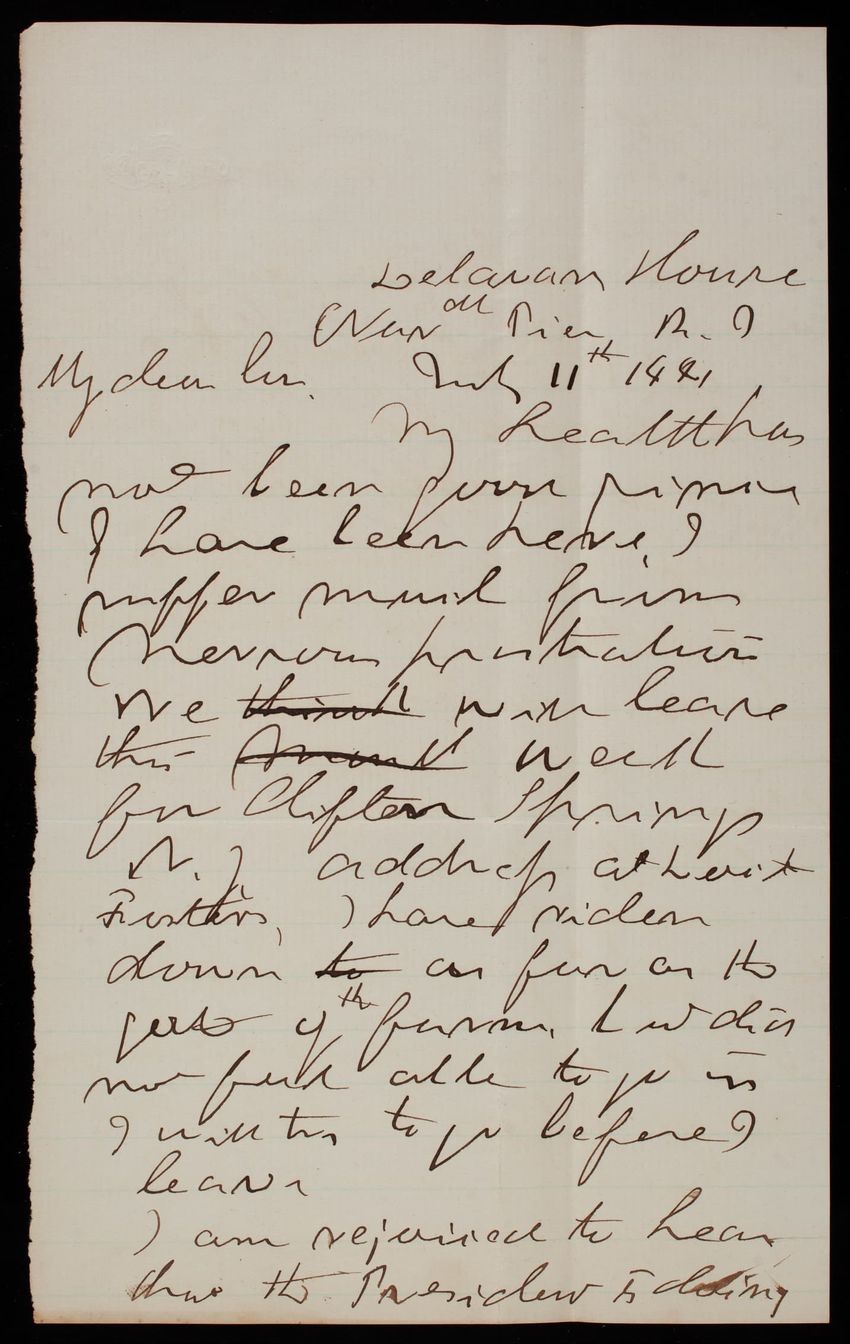 Delavan House
Narr ott Pier R. I
My dear Sir. July 11th 1881
My health has
not been good since
I have been here, I
suffer much from
nervous prostration
We think will leave
this month week
for Clifton Springs
N. Y address at
Fosters, I have riden
down to as far as the
gate of th farm, but did
not feel able to go in
I will try to go before I
leave
I am rejoiced to hear
that the President is doing